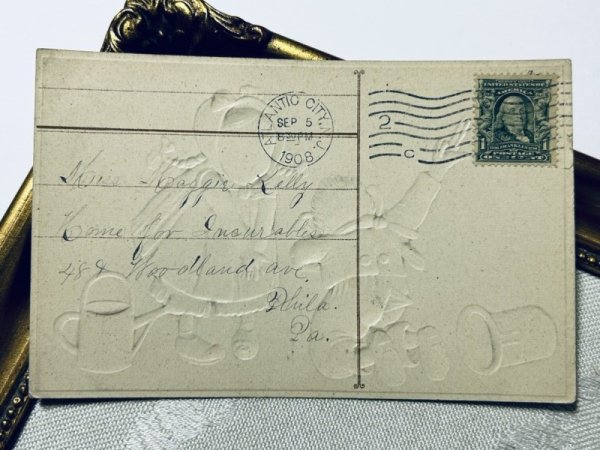 ATLANTIC CITY, N.J.
SEP 5
8 30 PM
1908
2
C
UNITED STATES OF
AMERICA
1
ONE CENT
Miss Maggie Kelly
Home for Incurables
48 & Woodland ave
Phila.
Pa.